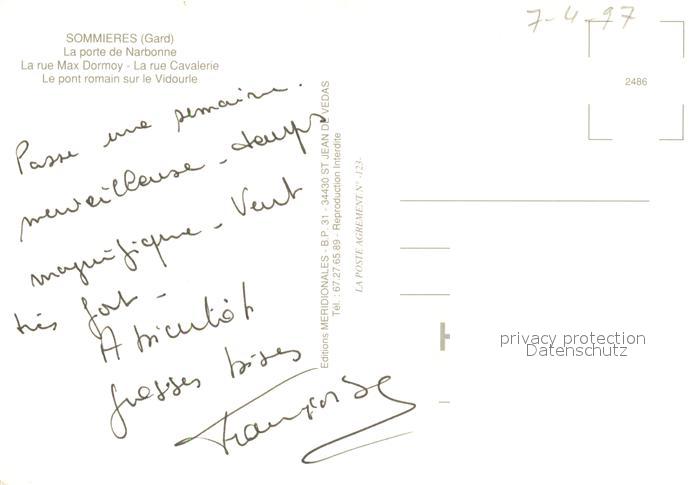 7-4-97
SOMMIERES (Gard)
La porte de Narbonne
La rue Max Dormoy - La rue Cavalerie
Le pont romain sur le Vidourle
2486
Passe une semaine.
merveilleuse - temps
magnifique - Vent
très fort -
A bientôt
grosses bises
Françoise
Editions MERIDIONALES - B.P. 31 - 34430 ST JEAN DE VEDAS
Tél. : 67.27.65.89 - Reproduction Interdite
LA POSTE AGREMENT N° -123-
privacy protection
Datenschutz